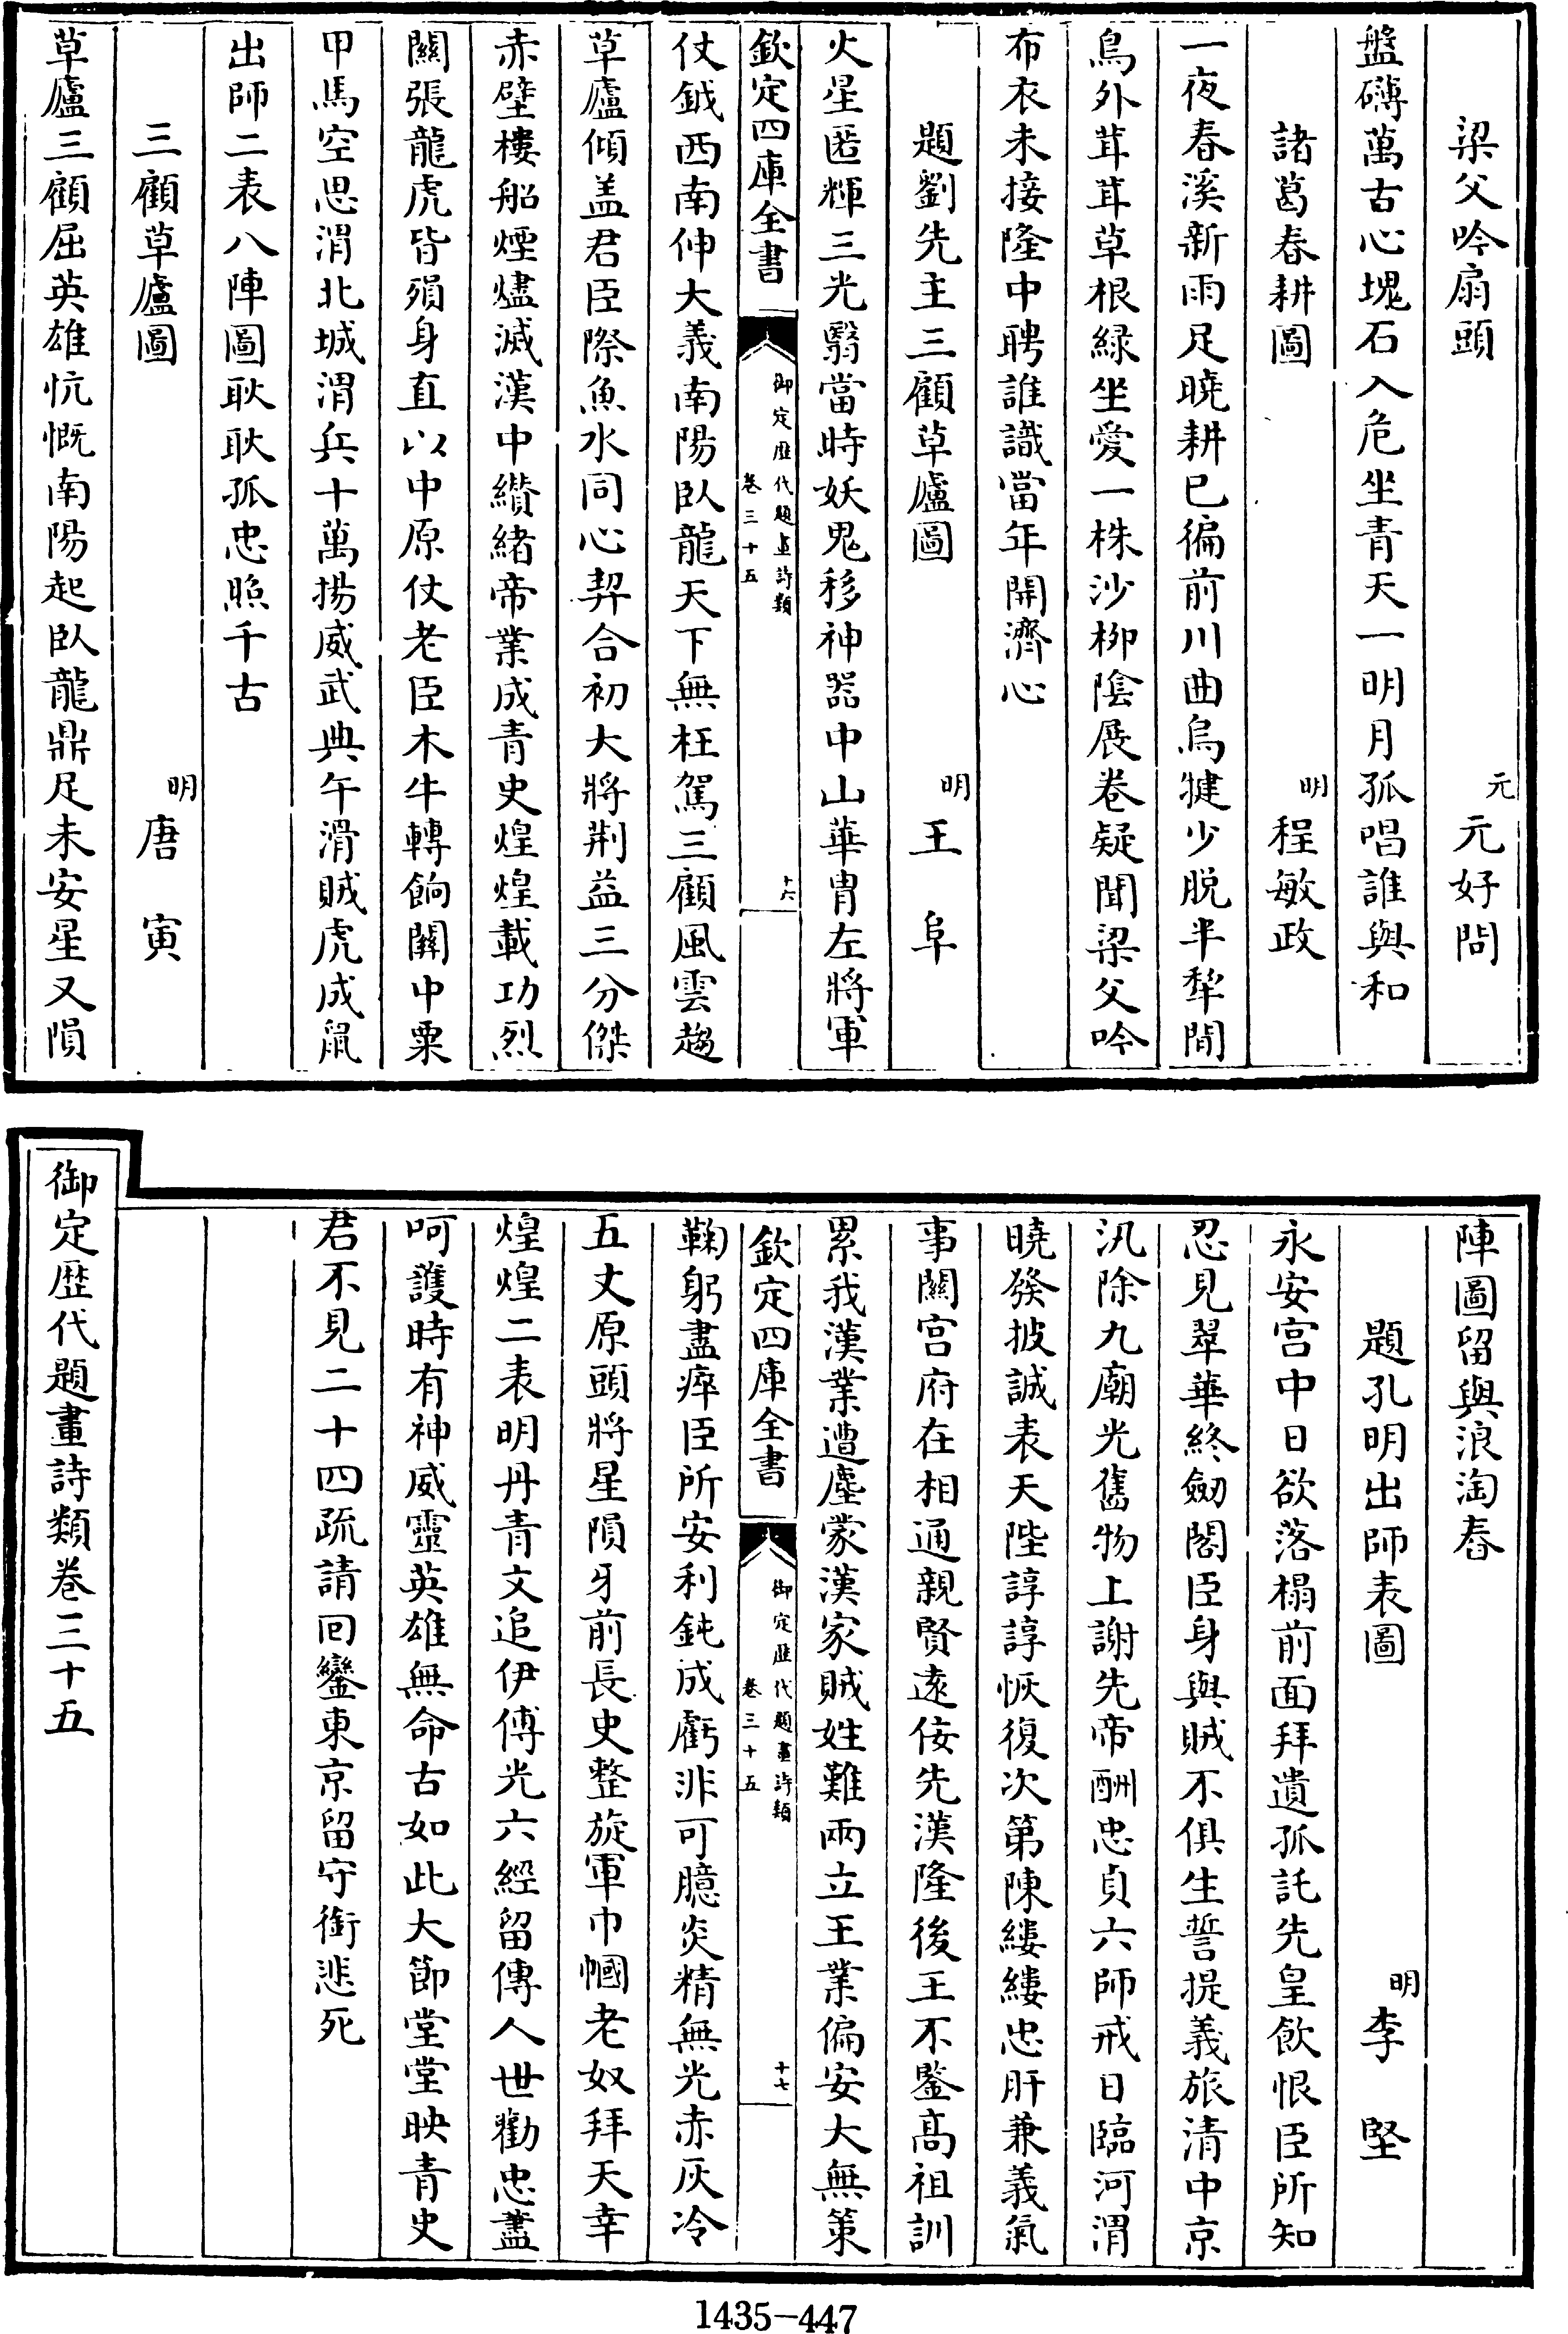 梁父吟扇頭 元 元好問
盤礴萬古心塊石入危坐青天一明月孤唱誰與和
諸葛春耕圖 明 程敏政
一夜春溪新雨足曉耕已徧前川曲烏犍少脱半犂閒
鳥外茸茸草根緑坐愛一株沙柳隂展卷疑聞梁父吟
布衣未接隆中聘誰識當年開濟心
題劉先主三顧草廬圖 明 王阜
火星匿輝三光翳當時妖鬼移神器中山華胄左將軍
欽定四庫全書
御定歴代題畫詩類
卷三十五
十六
仗鉞西南伸大義南陽臥龍天下無枉駕三顧風雲趨
草廬傾盖君臣際魚水同心契合初大將荆益三分傑
赤壁樓船煙燼滅漢中纘緒帝業成青史煌煌載功烈
關張龍虎皆殞身直以中原仗老臣木牛轉餉關中粟
甲馬空思渭北城渭兵十萬揚威武典午滑賊虎成鼠
出師二表八陣圖耿耿孤忠照千古
三顧草廬圖 明 唐寅
草廬三顧屈英雄忼慨南陽起臥龍鼎足未安星又隕
陣圖留與浪淘舂
題孔明出師表圖 明 李堅
永安宫中日欲落榻前面拜遺孤託先皇飲恨臣所知
忍見翠華終劒閣臣身與賊不俱生誓提義旅清中京
汛除九廟光舊物上謝先帝酬忠貞六師戒日臨河渭
曉發披誠表天陛諄諄恢復次第陳縷縷忠肝兼義氣
事關宫府在相通親賢逺佞先漢隆後王不鑒髙祖訓
累我漢業遭塵蒙漢家賊姓難兩立王業偏安大無策
欽定四庫全書
御定歴代題畫詩類
卷三十五
十七
鞠躬盡瘁臣所安利鈍成虧非可臆炎精無光赤灰冷
五丈原頭將星隕牙前長史整旋軍巾幗老奴拜天幸
煌煌二表明丹青文追伊傅光六經留傳人世勸忠藎
呵護時有神威靈英雄無命古如此大節堂堂映青史
君不見二十四疏請回鑾東京留守銜悲死
御定歴代題畫詩類卷三十五
1435-447